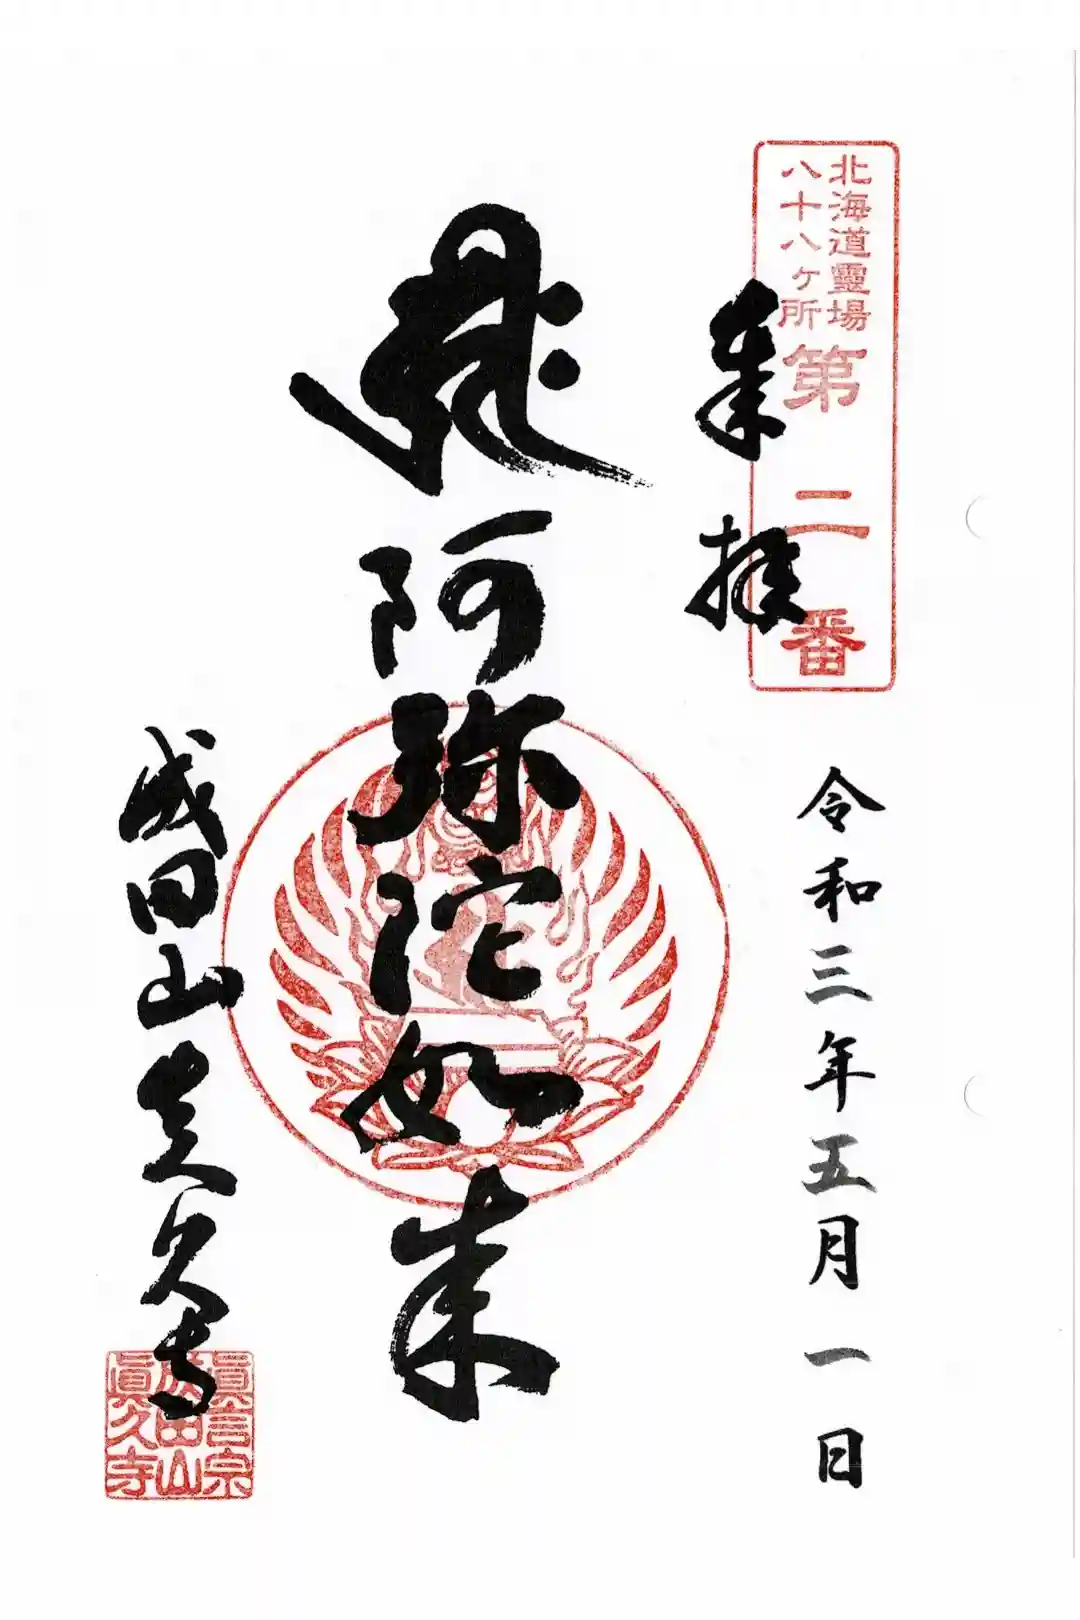 北海道靈場
八十八ヶ所
第二番
奉拝
令和三年五月一日
阿弥陀如来
成田山真久寺
眞言宗
成田山
眞久寺